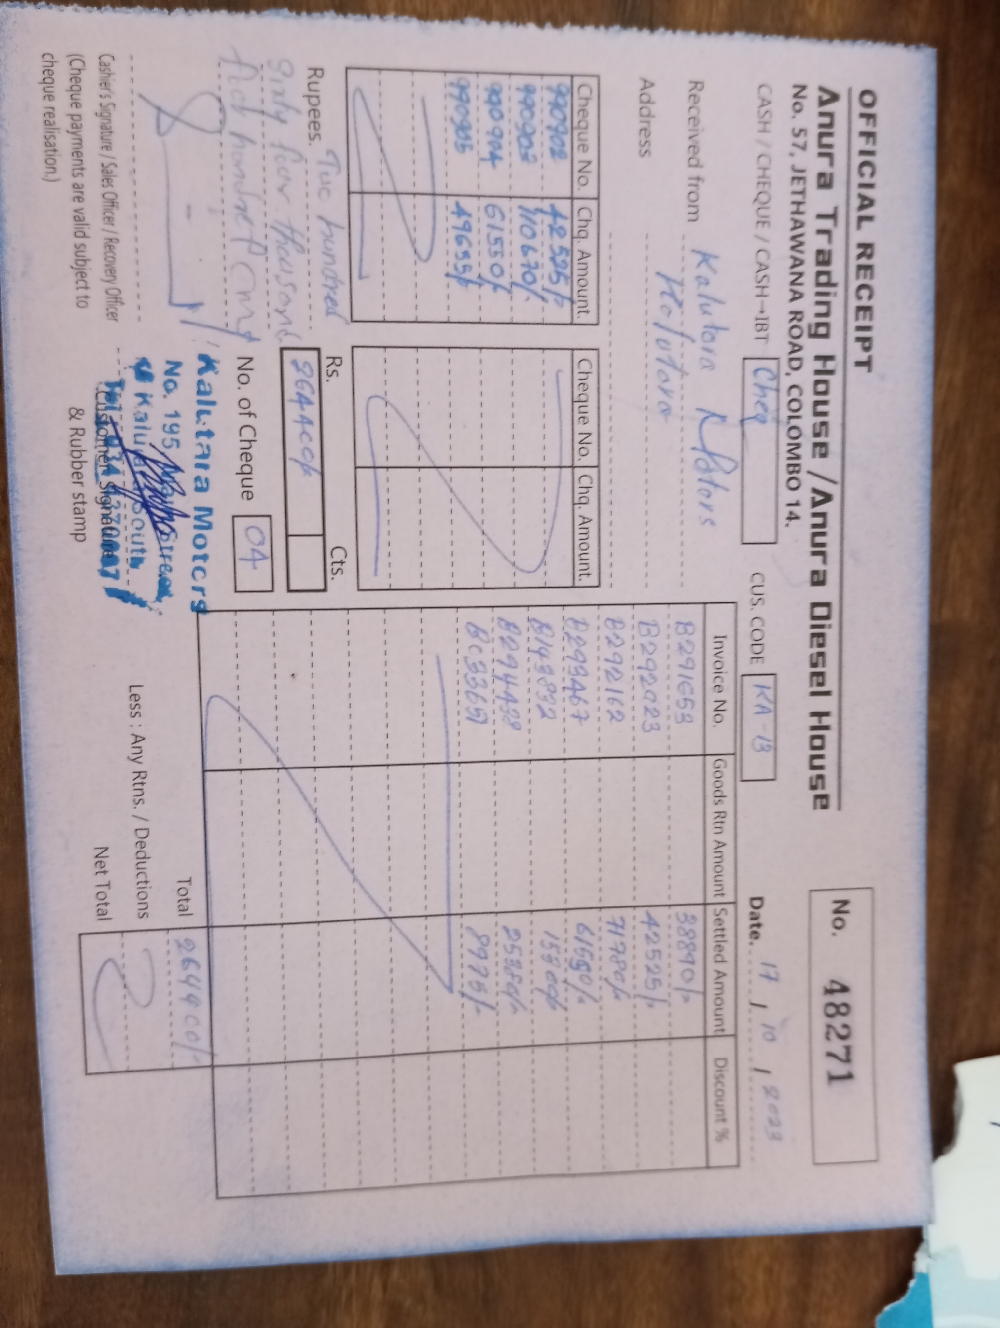 OFFICIAL RECEIPT
Anura Trading House / Anura Diesel House
No. 57, JETHAWANA ROAD, COLOMBO 14.
No. 48271
CASH / CHEQUE / CASH→IBT Cheq CUS. CODE KA-13 Date. 17 / 10 / 2023
Received from Kalutara Motors
Address Kalutara
Cheque No. Chq. Amount. Cheque No. Chq. Amount.
990902 42525/-
990903 110670/-
990904 61550/-
990905 49655/-
Invoice No. Goods Rtn Amount Settled Amount Discount %
B291653 38890/-
B292023 42525/-
B292162 71780/-
B293467 61550/-
B143892
B294498
8975/-
Rupees. Two hundred
Sixty four thousand
four hundred
Rs. Cts.
264400/-
No. of Cheque 04
Total 264400/-
Less : Any Rtns. / Deductions
Net Total
Cashier's Signature / Sales Officer / Recovery Officer
(Cheque payments are valid subject to
cheque realisation.)
Kalutara Motors
No. 195
Kalutara South
Customer Signature
& Rubber stamp